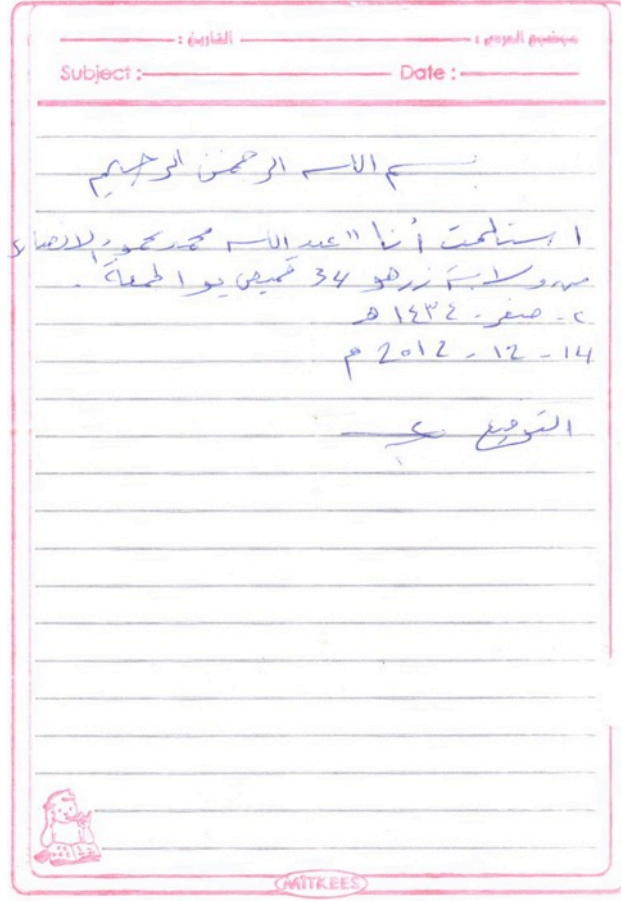 موضوع الدرس : التاريخ :
Subject : Date :
بسم الله الرحمن الرحيم
استلمت أنا " عبد الله محمد محمود الانصار
من ولاية 34 قميص
٢ - صفر - ١٤٣٤ هـ
14 - 12 - 2012 م
التوقيع
MITKEES